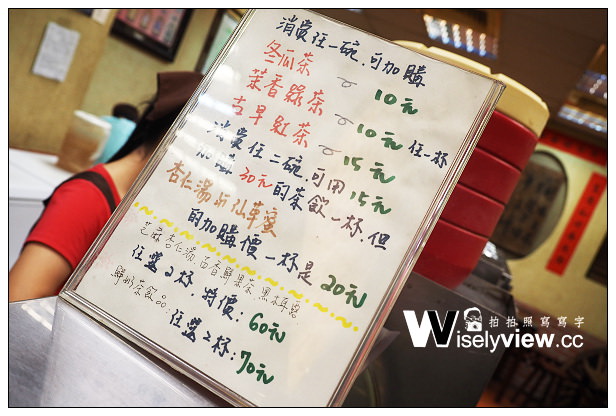 消費任一碗,可加購
冬瓜茶 10元
茉香綠茶 10元 任一杯
古早紅茶 15元
消費任二碗,可用15元
加購30元的茶飲一杯,但
杏仁湯、仙草蜜
的加購價一杯是20元
芝麻杏仁湯,百香野果茶,黑木耳露
任選2杯,特價:60元
鮮奶茶飲品
任選2杯:70元
拍拍照寫寫字
Wiselyview.cc